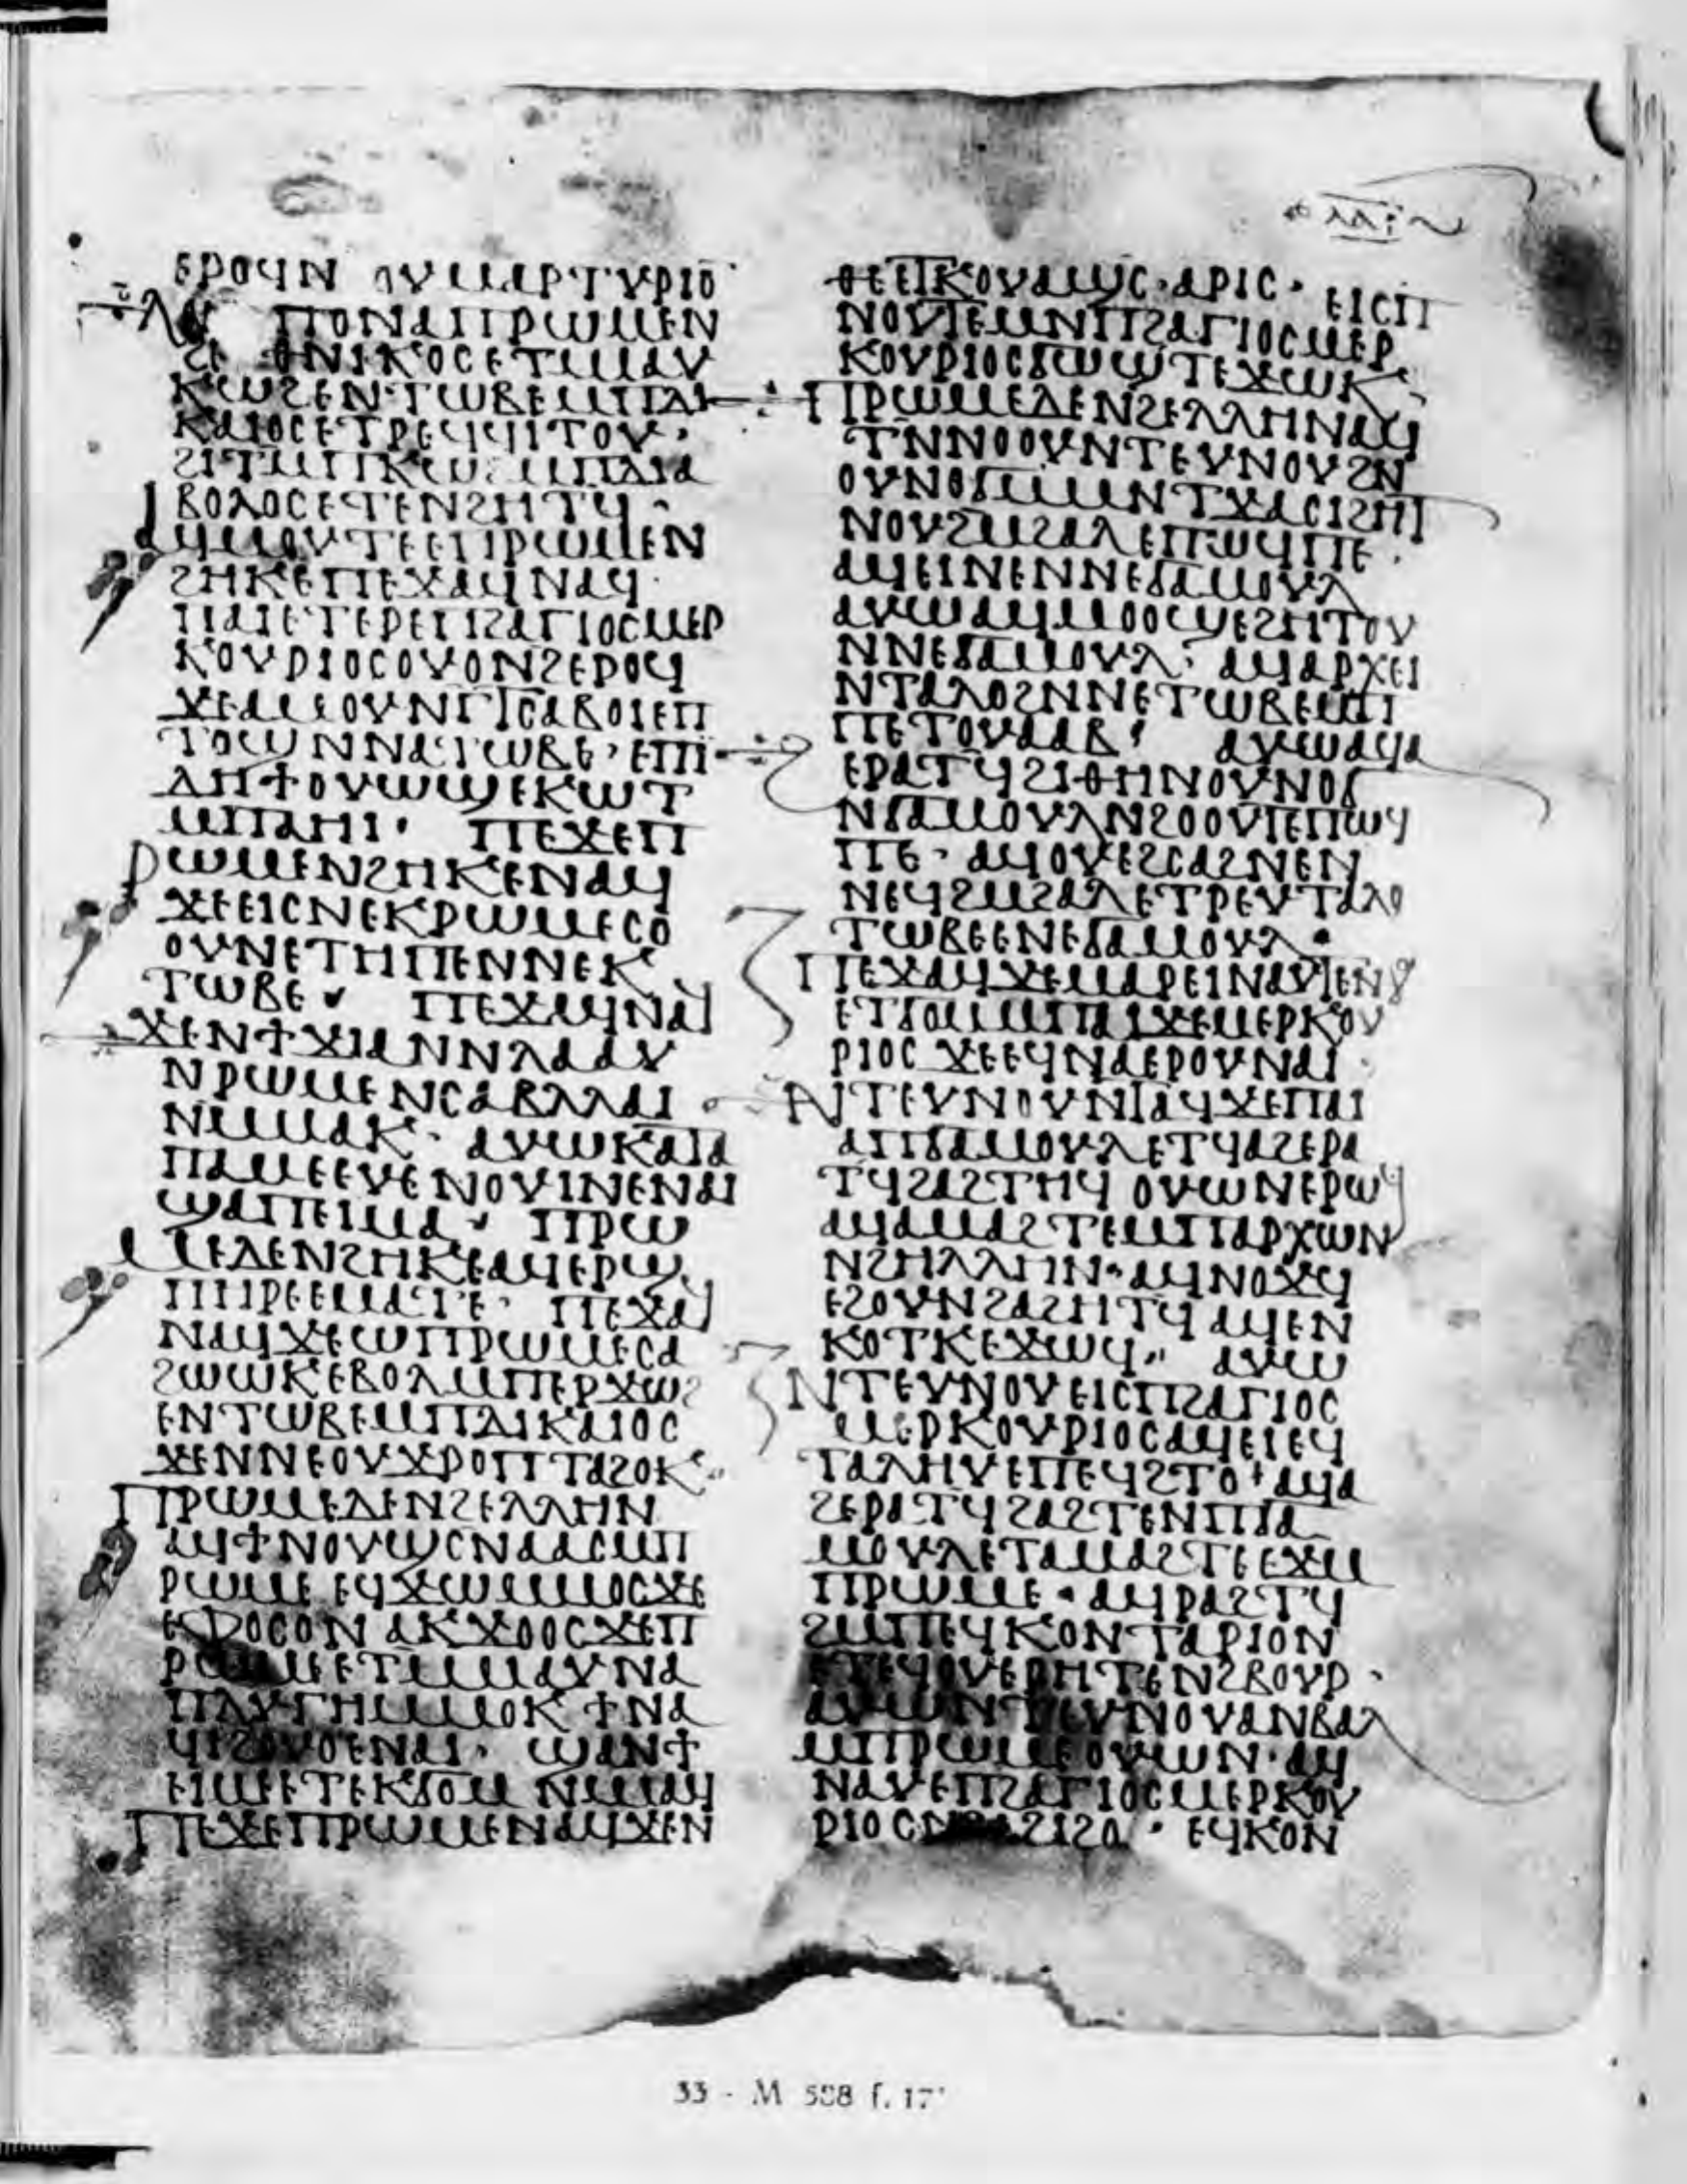 ⲉⲣⲟϥⲛ ⲟⲩⲙⲁⲣⲧⲩⲣⲓⲟ
ⲡⲟⲛⲁⲡⲣⲱⲙⲉⲛ
ϩⲉⲑⲛⲓⲕⲟⲥⲉⲧⲙⲙⲁⲩ
ⲕⲱϩⲉⲛⲧⲱⲃⲉⲙⲡⲇⲓ
ⲕⲁⲓⲟⲥⲉⲧⲣⲉϥϥⲓⲧⲟⲩ·
ϩⲓⲧⲙⲡⲕⲱϩⲙⲡⲇⲓⲁ
ⲃⲟⲗⲟⲥⲉⲧⲉⲛϩⲏⲧϥ·
ⲁϥⲙⲟⲩⲧⲉⲉⲡⲣⲱⲙⲉⲛ
ϩⲏⲕⲉⲡⲉϫⲁϥⲛⲁϥ·
ⲡⲁⲓⲉⲧⲉⲣⲉⲡϩⲁⲅⲓⲟⲥⲙⲉⲣ
ⲕⲟⲩⲣⲓⲟⲥⲟⲩⲟⲛϩⲉⲣⲟϥ
ϫⲉⲁⲙⲟⲩⲛⲅⲧⲥⲁⲃⲟⲓⲉⲡ
ⲧⲟϣⲛⲛⲁⲧⲱⲃⲉ· ⲉⲡⲓ
ⲇⲏϯⲟⲩⲱϣⲉⲕⲱⲧ
ⲙⲡⲁⲏⲓ· ⲡⲉϫⲉⲡ
ⲣⲱⲙⲉⲛϩⲏⲕⲉⲛⲁϥ
ϫⲉⲉⲓⲥⲛⲉⲕⲣⲱⲙⲉⲥⲟ
ⲟⲩⲛⲉⲧⲏⲡⲉⲛⲛⲉⲕ
ⲧⲱⲃⲉ ⲡⲉϫⲁϥⲛⲁϥ
ϫⲉⲛϯϫⲓⲁⲛⲛⲗⲁⲁⲩ
ⲛⲣⲱⲙⲉⲛⲥⲁⲃⲗⲗⲁⲓ
ⲛⲙⲙⲁⲕ· ⲁⲩⲱⲕⲁⲧⲁ
ⲡⲁⲙⲉⲉⲩⲉⲛⲟⲩⲓⲛⲉⲛⲁⲓ
ϣⲁⲡⲉⲓⲙⲁ ⲡⲣⲱ
ⲙⲉⲇⲉⲛϩⲏⲕⲉⲁϥⲉⲣϣ
ⲡⲏⲣⲉⲉⲙⲁⲧⲉ· ⲡⲉϫⲁϥ
ⲛⲁϥϫⲉⲱⲡⲣⲱⲙⲉⲥⲁ
ϩⲱⲱⲕⲉⲃⲟⲗⲙⲡⲉⲣϫⲱϩ
ⲉⲛⲧⲱⲃⲉⲙⲡⲇⲓⲕⲁⲓⲟⲥ
ϫⲉⲛⲛⲉⲟⲩϫⲣⲟⲡⲧⲁϩⲟⲕ
ⲡⲣⲱⲙⲉⲇⲉⲛϩⲉⲗⲗⲏⲛ
ⲁϥϯⲛⲟⲩϣⲥⲛⲁⲁⲥⲙⲡ
ⲣⲱⲙⲉ ⲉϥϫⲱⲙⲙⲟⲥϫⲉ
ⲉⲫⲟⲥⲟⲛ ⲁⲕϫⲟⲟⲥϫⲉⲡ
ⲣⲱⲙⲉⲉⲧⲙⲙⲁⲩⲛⲁ
ⲡⲗⲩⲅⲏⲙⲙⲟⲕ ϯⲛⲁ
ϥⲓϩⲟⲩⲟⲉⲛⲁⲓ· ϣⲁⲛϯ
ⲉⲓⲙⲉⲉⲧⲉⲕϭⲟⲙ ⲛⲙⲙⲁϥ
ⲡⲉϫⲉⲡⲣⲱⲙⲉⲛⲁϥϫⲉⲛ
ⲑⲉⲉⲧⲕⲟⲩⲁϣⲥ·ⲁⲣⲓⲥ· ⲉⲓⲥⲡ
ⲛⲟⲩⲧⲉⲙⲛⲡϩⲁⲅⲓⲟⲥⲙⲉⲣ
ⲕⲟⲩⲣⲓⲟⲥϭⲱϣⲧⲉϫⲱⲕ
ⲡⲣⲱⲙⲉⲇⲉⲛϩⲉⲗⲗⲏⲛⲁϥ
ⲧⲛⲛⲟⲟⲩⲛⲧⲉⲩⲛⲟⲩϩⲛ
ⲟⲩⲛⲟϭⲙⲙⲛⲧϫⲁⲥⲓϩⲏⲧ
ⲛⲟⲩϩⲙϩⲁⲗⲉⲡⲱϥⲡⲉ·
ⲁϥⲉⲓⲛⲉⲛⲛⲉϭⲁⲙⲟⲩⲗ
ⲁⲩⲱⲁϥⲙⲟⲟϣⲉϩⲏⲧⲟⲩ
ⲛⲛⲉϭⲁⲙⲟⲩⲗ· ⲁϥⲁⲣⲭⲉⲓ
ⲛⲧⲁⲗⲟϩⲛⲛⲉⲧⲱⲃⲉⲙⲡ
ⲡⲉⲧⲟⲩⲁⲁⲃ ⲁⲩⲱⲁϥⲁ
ⲉⲣⲁⲧϥϩⲓⲑⲏⲛⲟⲩⲛⲟϭ
ⲛϭⲁⲙⲟⲩⲗⲛϩⲟⲟⲩⲧⲉⲡⲱϥ
ⲡⲉ· ⲁϥⲟⲩⲉϩⲥⲁϩⲛⲉⲛ
ⲛⲉϥϩⲙϩⲁⲗⲉⲧⲣⲉⲩⲧⲁⲗⲟ
ⲧⲱⲃⲉⲉⲛⲉϭⲁⲙⲟⲩⲗ·
ⲡⲉϫⲁϥϫⲉⲙⲁⲣⲉⲓⲛⲁⲩⲧⲉⲛⲟⲩ
ⲉⲧϭⲟⲙⲙⲡⲁⲓϫⲉⲙⲉⲣⲕⲟⲩ
ⲣⲓⲟⲥ ϫⲉⲉϥⲛⲁⲉⲣⲟⲩⲛⲁⲓ
ⲛⲧⲉⲩⲛⲟⲩⲛⲧⲁϥϫⲉⲡⲁⲓ
ⲁⲡϭⲁⲙⲟⲩⲗⲉⲧϥⲁϩⲉⲣⲁ
ⲧϥϩⲁϩⲧⲏϥ ⲟⲩⲱⲛⲉⲣⲱϥ
ⲁϥⲁⲙⲁϩⲧⲉⲙⲡⲁⲣⲭⲱⲛ
ⲛϩⲏⲗⲗⲏⲛ·ⲁϥⲛⲟϫϥ
ⲉϩⲟⲩⲛϩⲁϩⲏⲧϥ ⲁϥⲉⲛ
ⲕⲟⲧⲕⲉϫⲱϥ ⲁⲩⲱ
ⲛⲧⲉⲩⲛⲟⲩ ⲉⲓⲥⲡϩⲁⲅⲓⲟⲥ
ⲙⲉⲣⲕⲟⲩⲣⲓⲟⲥⲁϥⲉⲓⲉϥ
ⲧⲁⲗⲏⲩⲉⲡⲉϥϩⲧⲟ ⲁϥⲁ
ϩⲉⲣⲁⲧϥϩⲁϩⲧⲉⲛⲡϭⲁ
ⲙⲟⲩⲗⲉⲧⲁⲙⲁϩⲧⲉⲉϫⲙ
ⲡⲣⲱⲙⲉ·ⲁϥⲣⲁϩⲧϥ
ϩⲙⲡⲉϥⲕⲟⲛⲧⲁⲣⲓⲟⲛ
ⲉⲧⲉϥⲟⲩⲉⲣⲏⲧⲉⲛϩⲃⲟⲩⲣ·
ⲁⲩⲱⲛⲧⲉⲩⲛⲟⲩⲁⲛⲃⲁⲗ
ⲙⲡⲣⲱⲙⲉⲟⲩⲱⲛ·ⲁϥ
ⲛⲁⲩⲉⲡϩⲁⲅⲓⲟⲥⲙⲉⲣⲕⲟⲩ
ⲣⲓⲟⲥ · ⲉϥⲕⲟⲛ
33 - M 588 f. 17